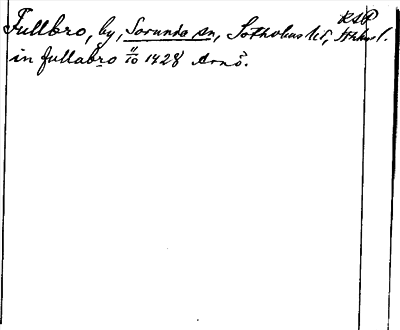 RAP
Fullbro, by, Sorunda sn, Sotholms hd, Sthms l.
in fullabro 11/10 1428 Arnö.